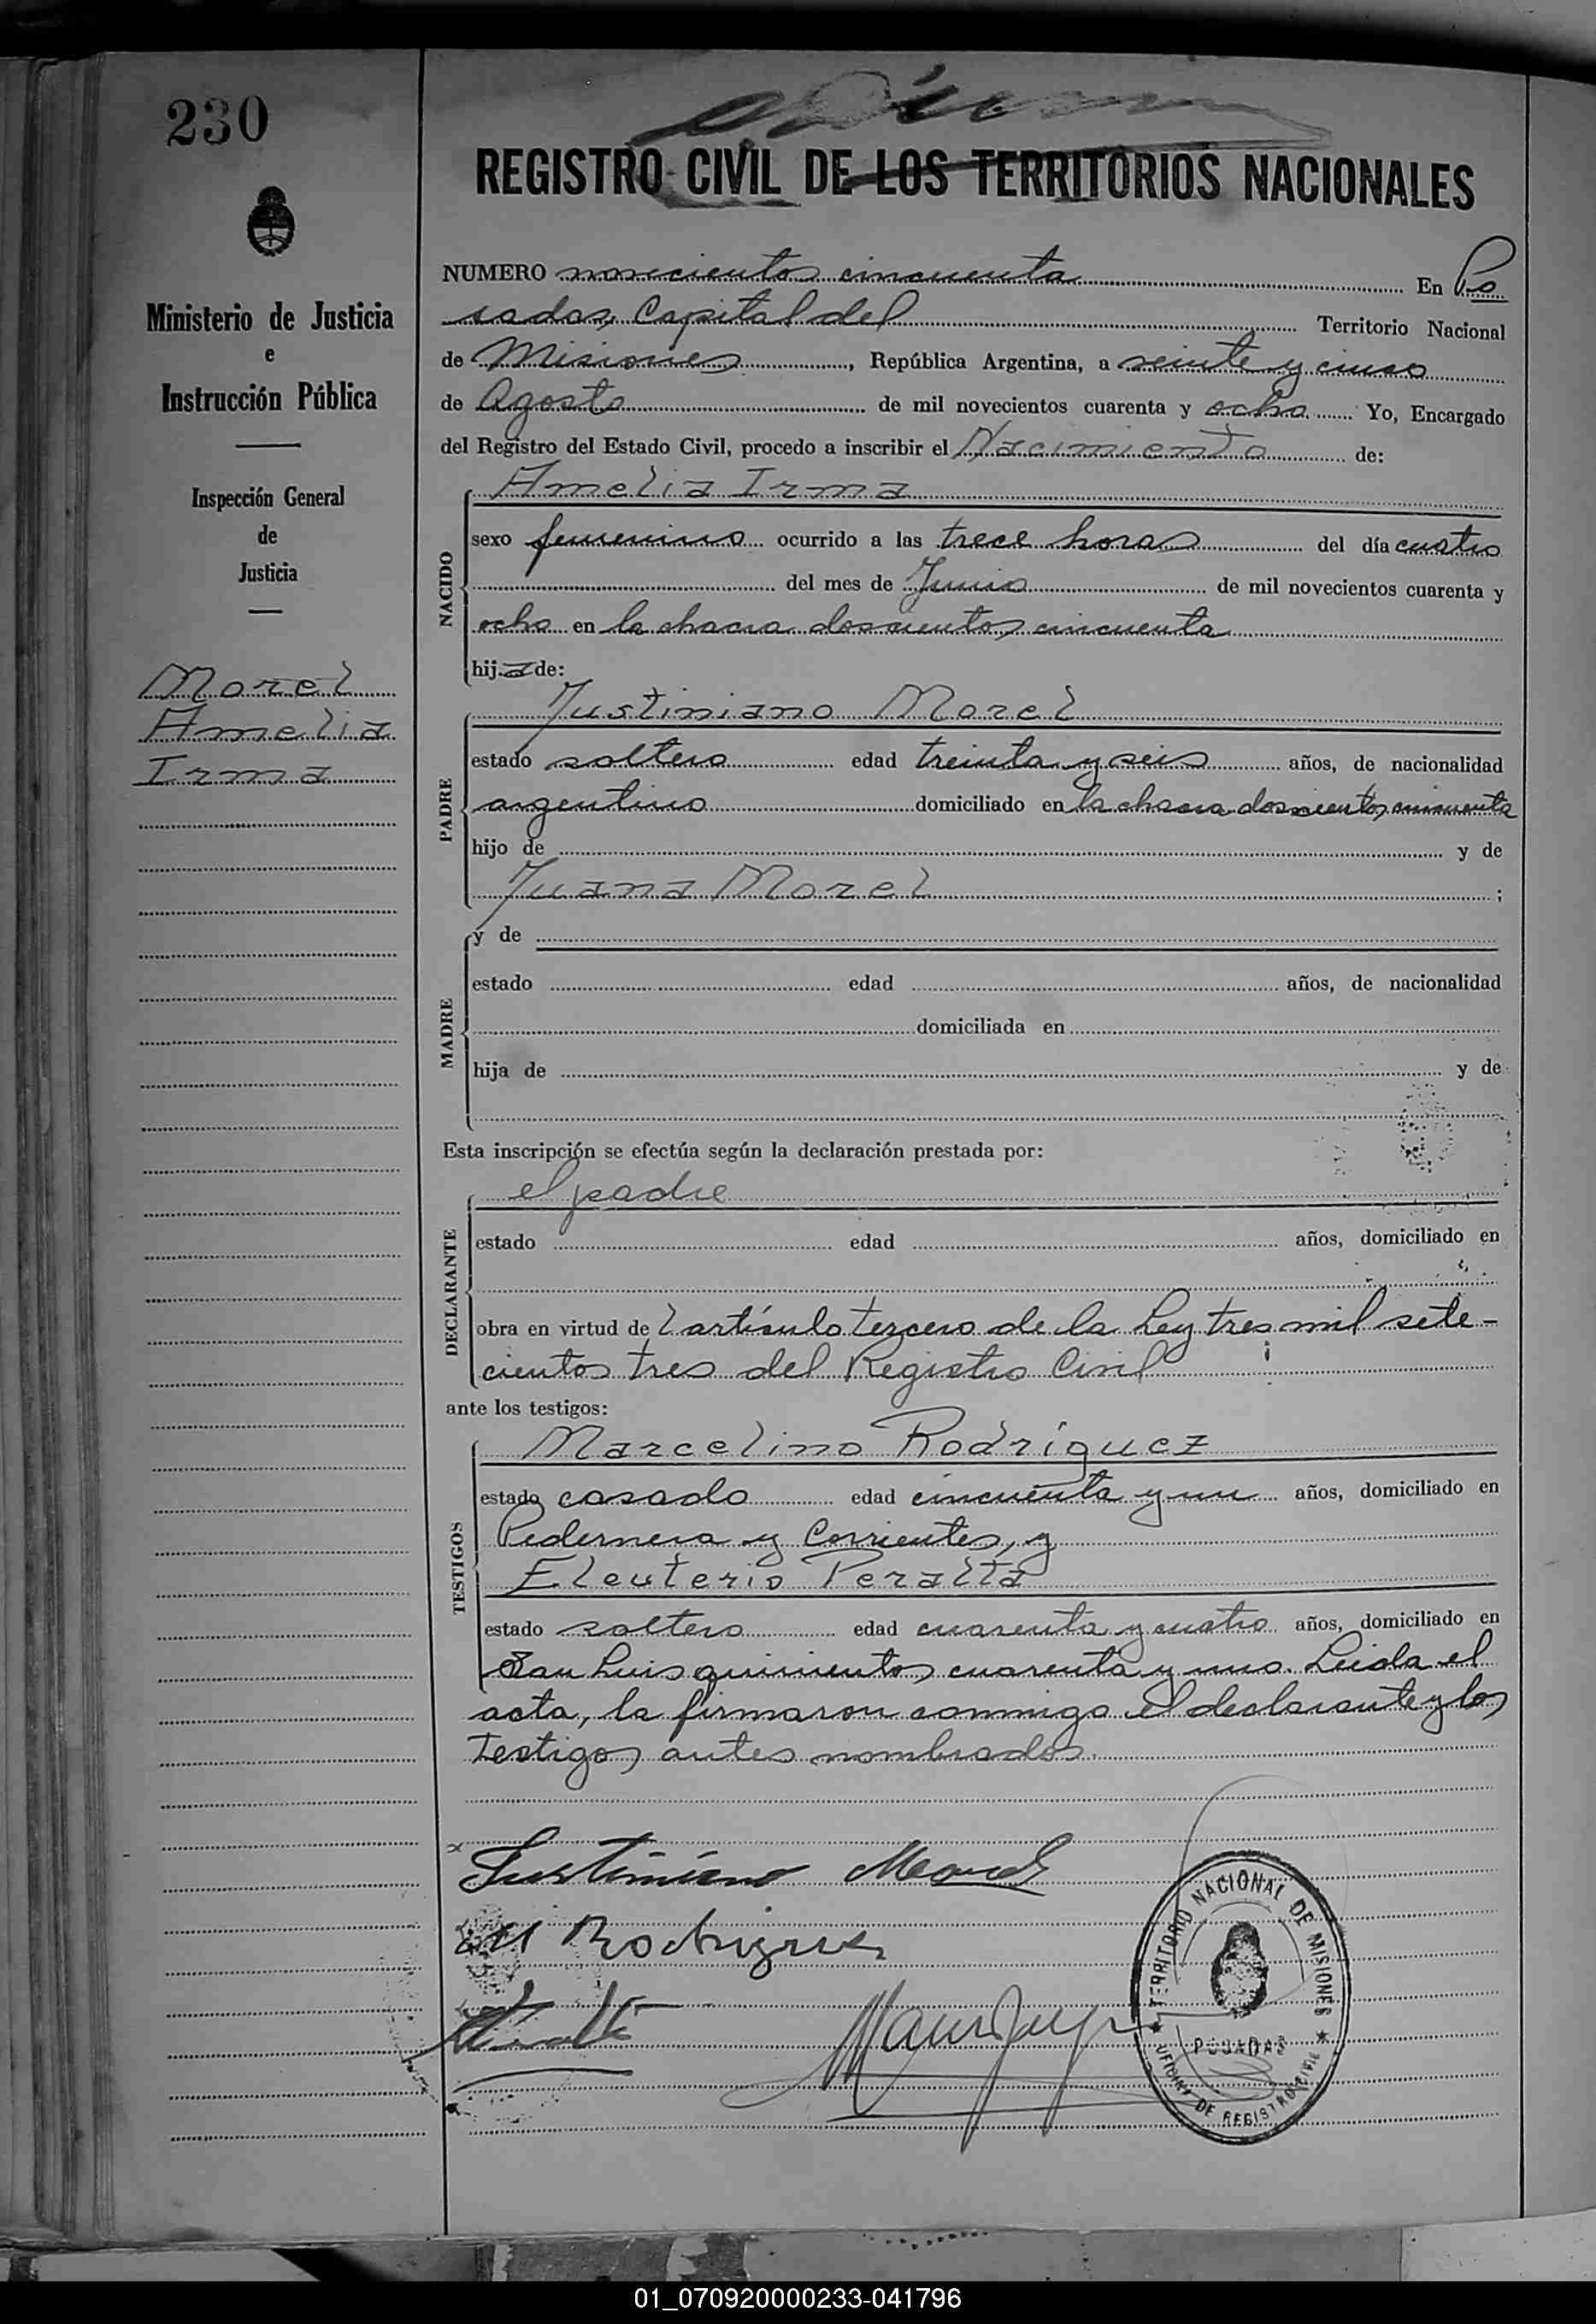 230
REGISTRO CIVIL DE LOS TERRITORIOS NACIONALES
Ministerio de Justicia
e
Instrucción Pública
Inspección General
de
Justicia
Morel
Amelia
Irma
NUMERO novecientos cincuenta En Po
sadas, Capital del Territorio Nacional
de Misiones, República Argentina, a veinte y cinco
de Agosto de mil novecientos cuarenta y ocho. Yo, Encargado
del Registro del Estado Civil, procedo a inscribir el Nacimiento de:
NACIDO
Amelia Irma
sexo femenino ocurrido a las trece horas del día cuatro
del mes de Junio de mil novecientos cuarenta y
ocho en la chacra doscientos cincuenta
hija de:
PADRE
Justiniano Morel
estado soltero edad treinta y seis años, de nacionalidad
argentino domiciliado en la chacra doscientos cincuenta
hijo de y de
Juana Morel ;
MADRE
y de
estado edad años, de nacionalidad
domiciliada en
hija de y de
Esta inscripción se efectúa según la declaración prestada por:
DECLARANTE
el padre
estado edad años, domiciliado en
obra en virtud del artículo tercero de la Ley tres mil sete-
cientos tres del Registro Civil
ante los testigos:
TESTIGOS
Marcelino Rodríguez
estado casado edad cincuenta y un años, domiciliado en
Pedernera y Corrientes, y
Eleuterio Peralta
estado soltero edad cuarenta y cuatro años, domiciliado en
San Luis quinientos cuarenta y uno. Leida el
acta, la firmaron conmigo el declarante y los
testigos antes nombrados.
Justiniano Morel
M Rodriguez
TERRITORIO NACIONAL DE MISIONES
POSADAS
OFICINA DE REGISTRO CIVIL
01_070920000233-041796